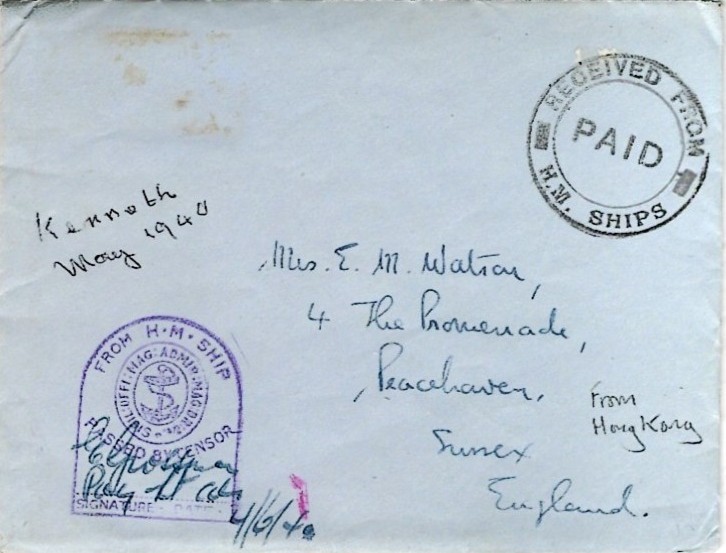 RECEIVED FROM
PAID
H.M. SHIPS
Kenneth
May 1940
Mrs. E. M. Watson,
4 The Promenade,
Peacehaven,
Sussex
England.
From
Hong Kong
FROM H·M·SHIP
PASSED BY CENSOR
Pay Lt
SIGNATURE - DATE -
4/6/40